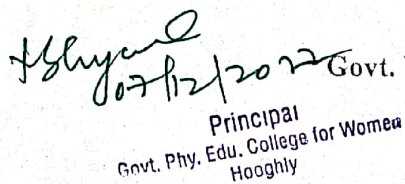 07/12/2022
Govt.
Principal
Govt. Phy. Edu. College for Women
Hooghly